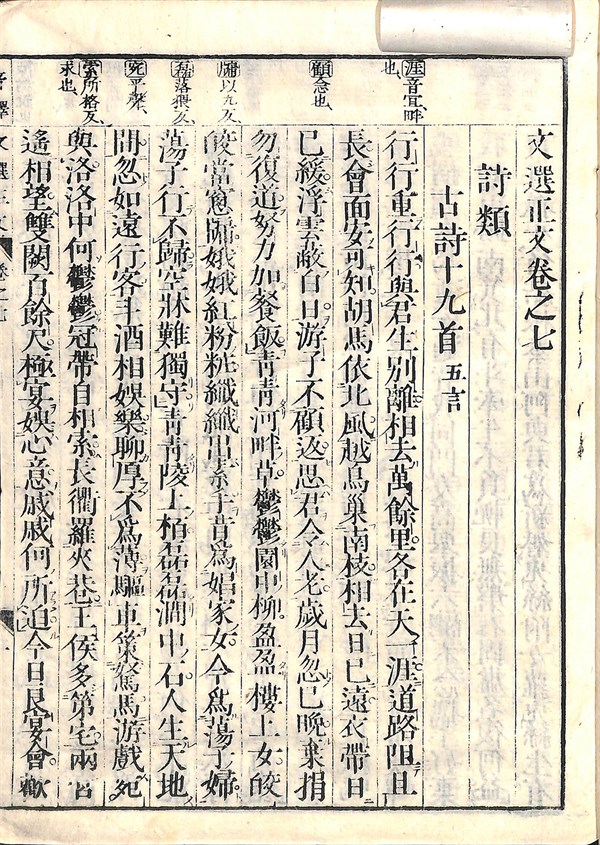 文選正文卷之七
詩類
古詩十九首 五言
行行重行行與君生別離相去萬餘里各在天一涯道路阻且
長會面安可知胡馬依北風越鳥巢南枝相去日已遠衣帶日
已緩浮雲蔽白日游子不顧返思君令人老歲月忽已晚棄捐
勿復道努力加餐飯青青河畔草鬱鬱園中柳盈盈樓上女皎
皎當窻牖娥娥紅粉粧纖纖出素手昔爲娼家女今爲蕩子婦
蕩子行不歸空牀難獨守青青陵上栢磊磊澗中石人生天地
間忽如遠行客斗酒相娛樂聊厚不爲薄驅車策駑馬游戲宛
與洛洛中何鬱鬱冠帶自相索長衢羅夾巷王侯多第宅兩宮
遙相望雙闕百餘尺極宴娛心意戚戚何所迫今日良宴會歡
涯音宜畔
也
顧念也
牖以九反
磊落猥反
宛平聲
索所格反
求也